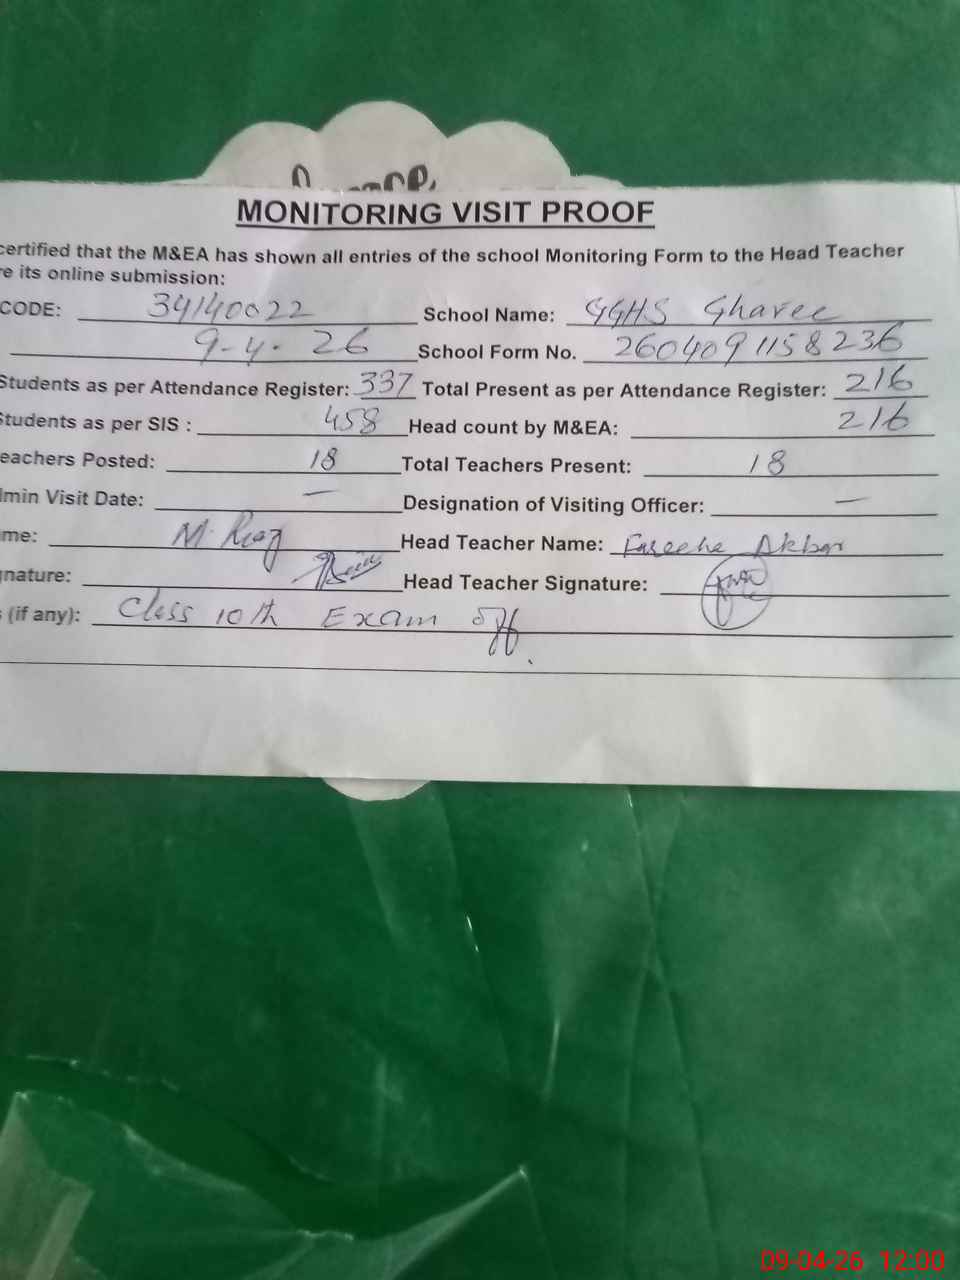 MONITORING VISIT PROOF
certified that the M&EA has shown all entries of the school Monitoring Form to the Head Teacher
re its online submission:
CODE: 34140022 School Name: GGHS Gharee
9-4-26 School Form No. 2604091158236
Students as per Attendance Register: 337 Total Present as per Attendance Register: 216
Students as per SIS : 458 Head count by M&EA: 216
eachers Posted: 18 Total Teachers Present: 18
dmin Visit Date: — Designation of Visiting Officer: —
me: M. Riaz Head Teacher Name: Fareeha Akbar
gnature: Head Teacher Signature:
s (if any): Class 10th Exam off.
09-04-26 12:00